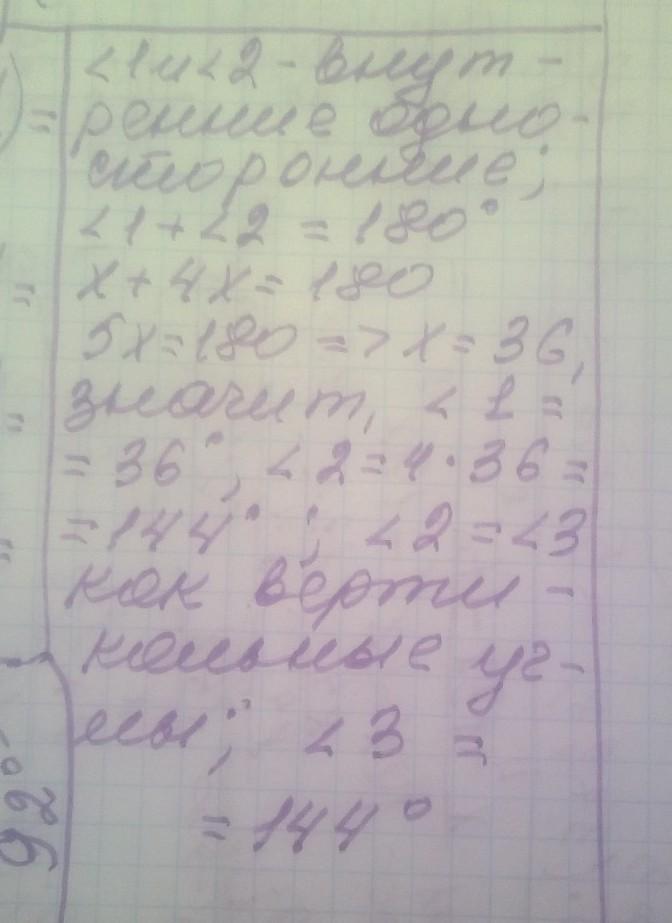 <1 и <2 - внут-
ренние одно-
сторонние;
<1 + <2 = 180°
x + 4x = 180
5x = 180 => x = 36,
значит, <1 =
= 36°, <2 = 4·36 =
= 144°; <2 = <3
как верти-
кальные уг-
лы; <3 =
= 144°
)=
=
=
=
92°